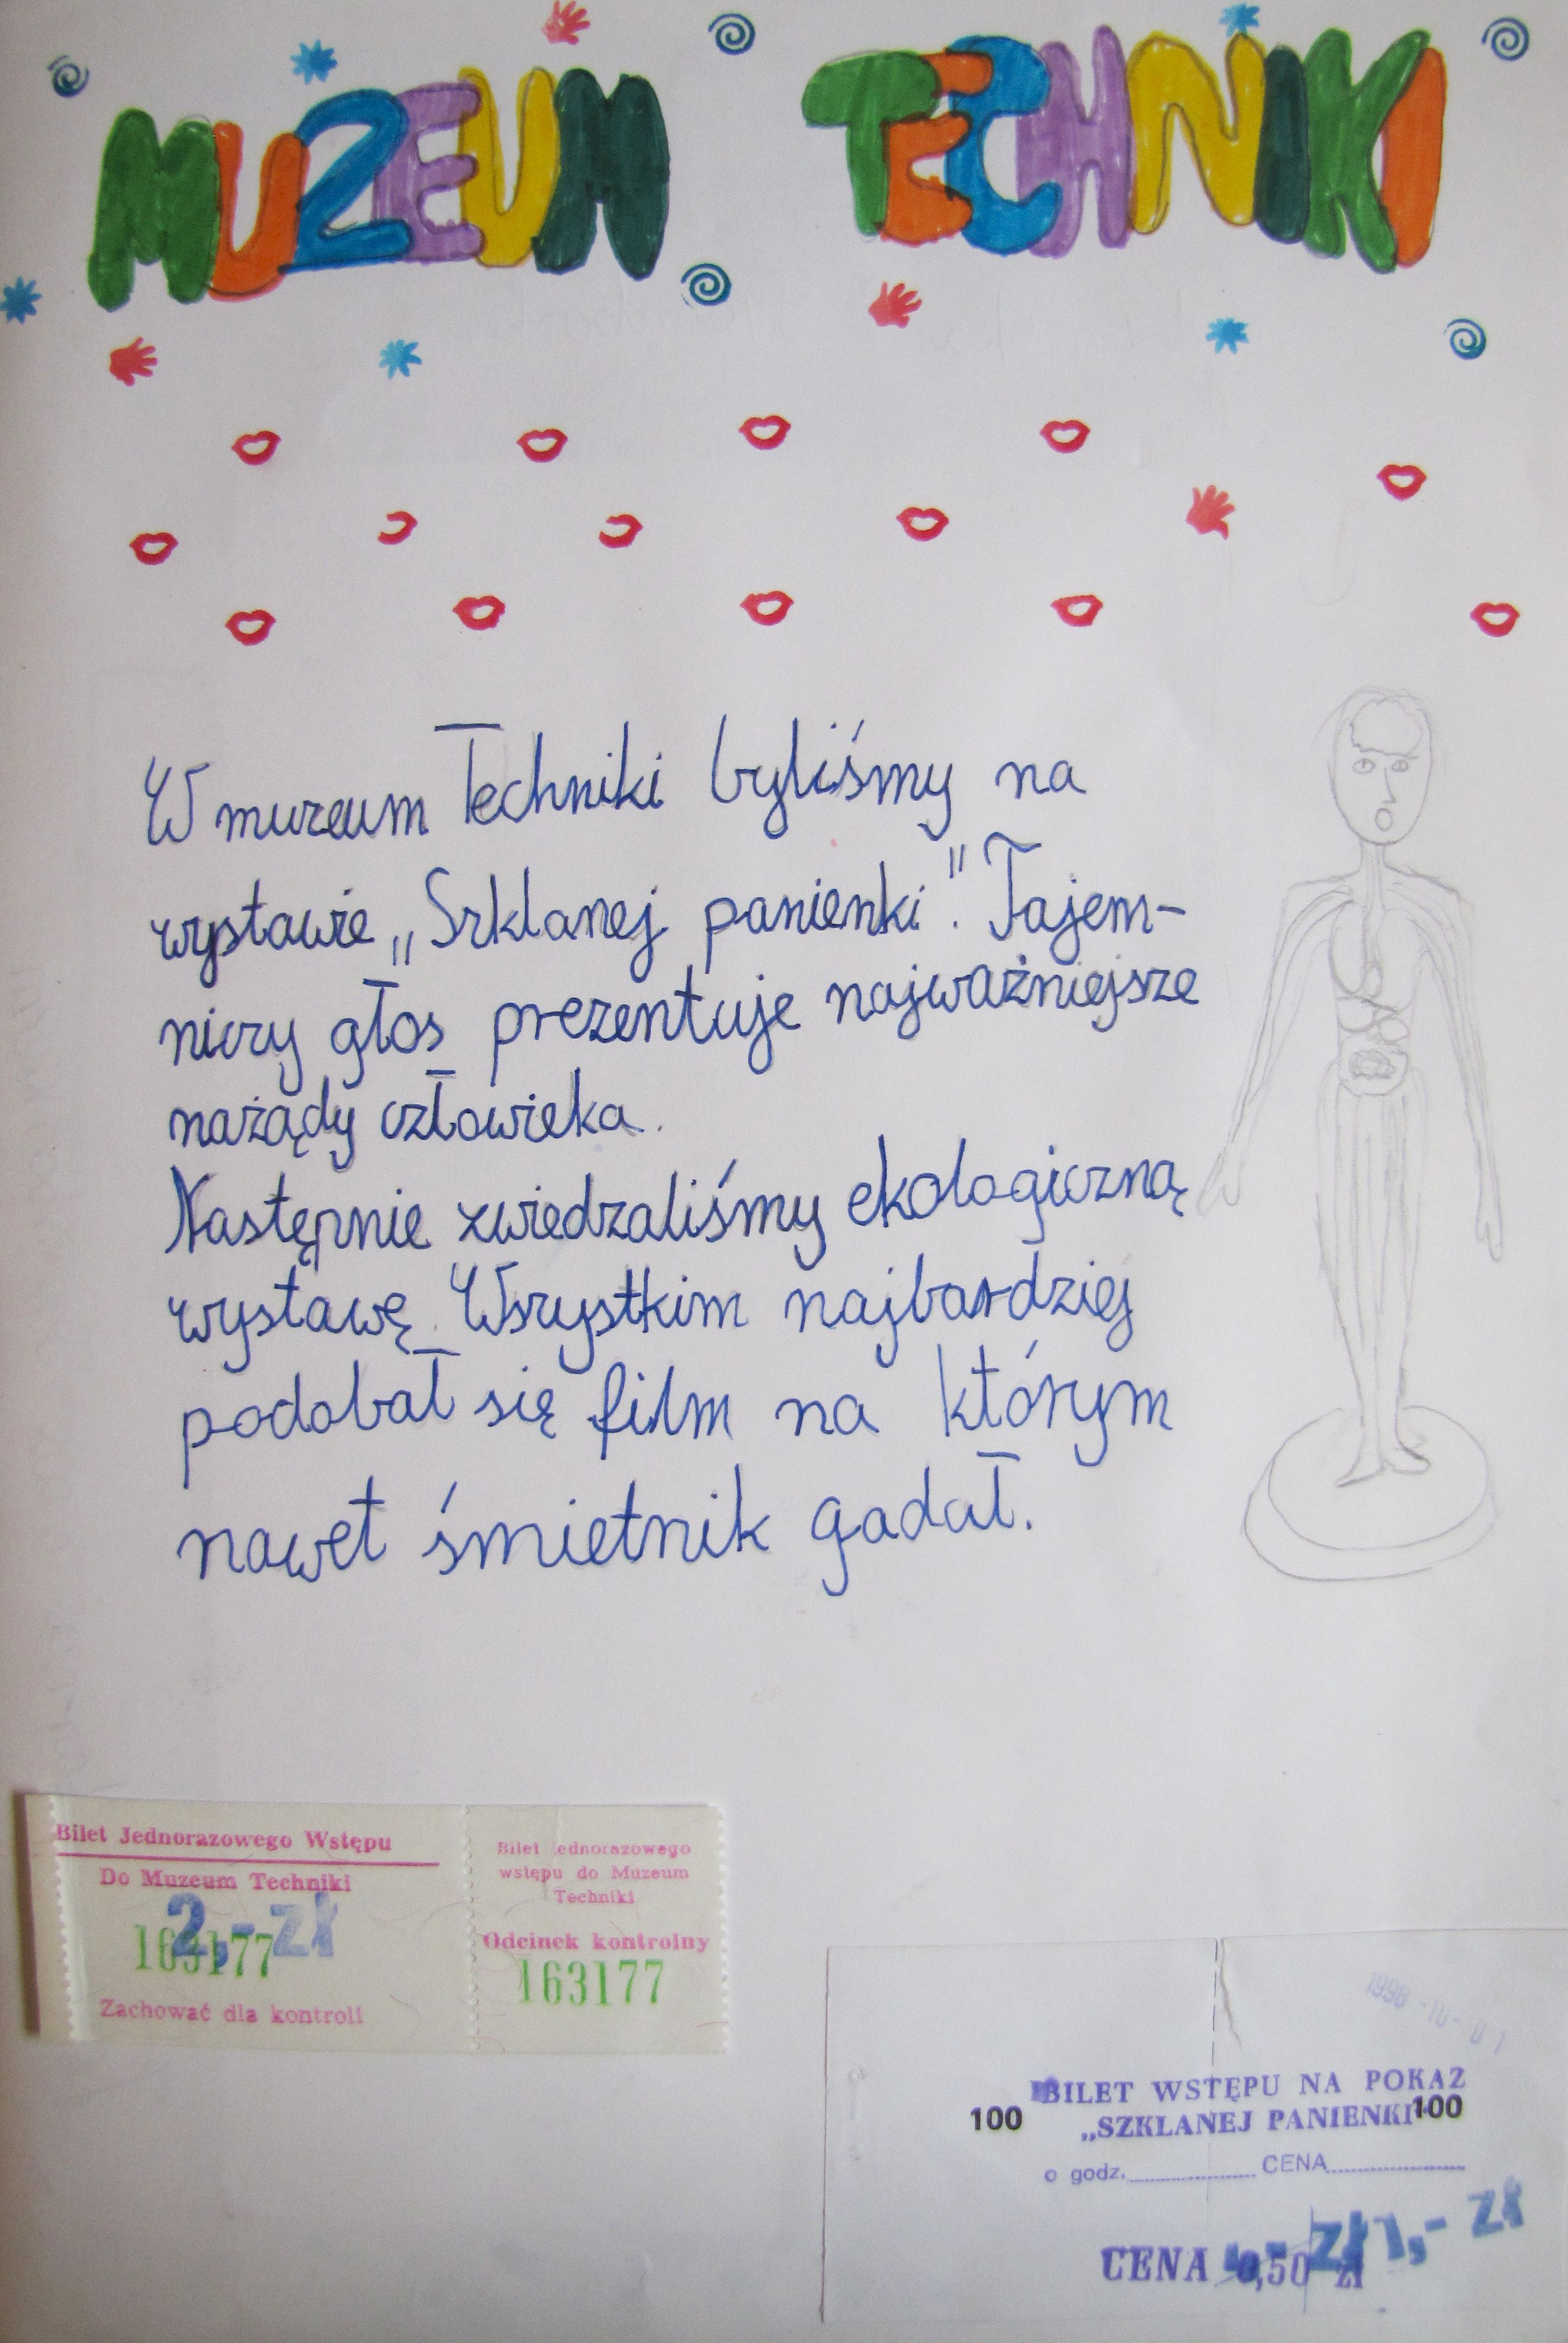 MUZEUM TECHNIKI
W muzeum Techniki byliśmy na
wystawie „Szklanej panienki". Tajem-
niczy głos prezentuje najważniejsze
nażądy człowieka.
Następnie zwiedzaliśmy ekologiczną
wystawę. Wszystkim najbardziej
podobał się film na którym
nawet śmietnik gadał.
Bilet Jednorazowego Wstępu
Do Muzeum Techniki
2,- zł
163177
Zachować dla kontroli
Bilet jednorazowego
wstępu do Muzeum
Techniki
Odcinek kontrolny
163177
1998 -10- 01
BILET WSTĘPU NA POKAZ
100 „SZKLANEJ PANIENKI" 100
o godz. CENA
1,- zł
CENA 0,50 zł